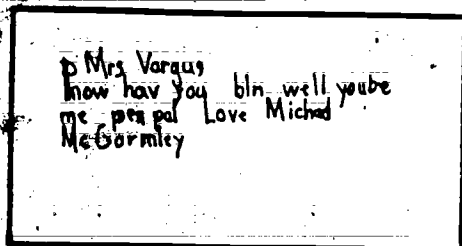 D Mrs Vargus
how hav you bln well yoube
me pen pal Love Michael
McGormley